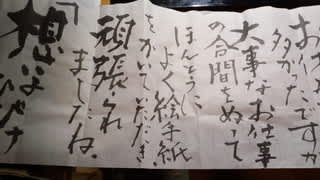 おけいこですが
多かった
大事なお仕事
の合間をぬって
ほんとうに
よく絵手紙
をかいていただき
頑張られ
ましたね。
「想いよ